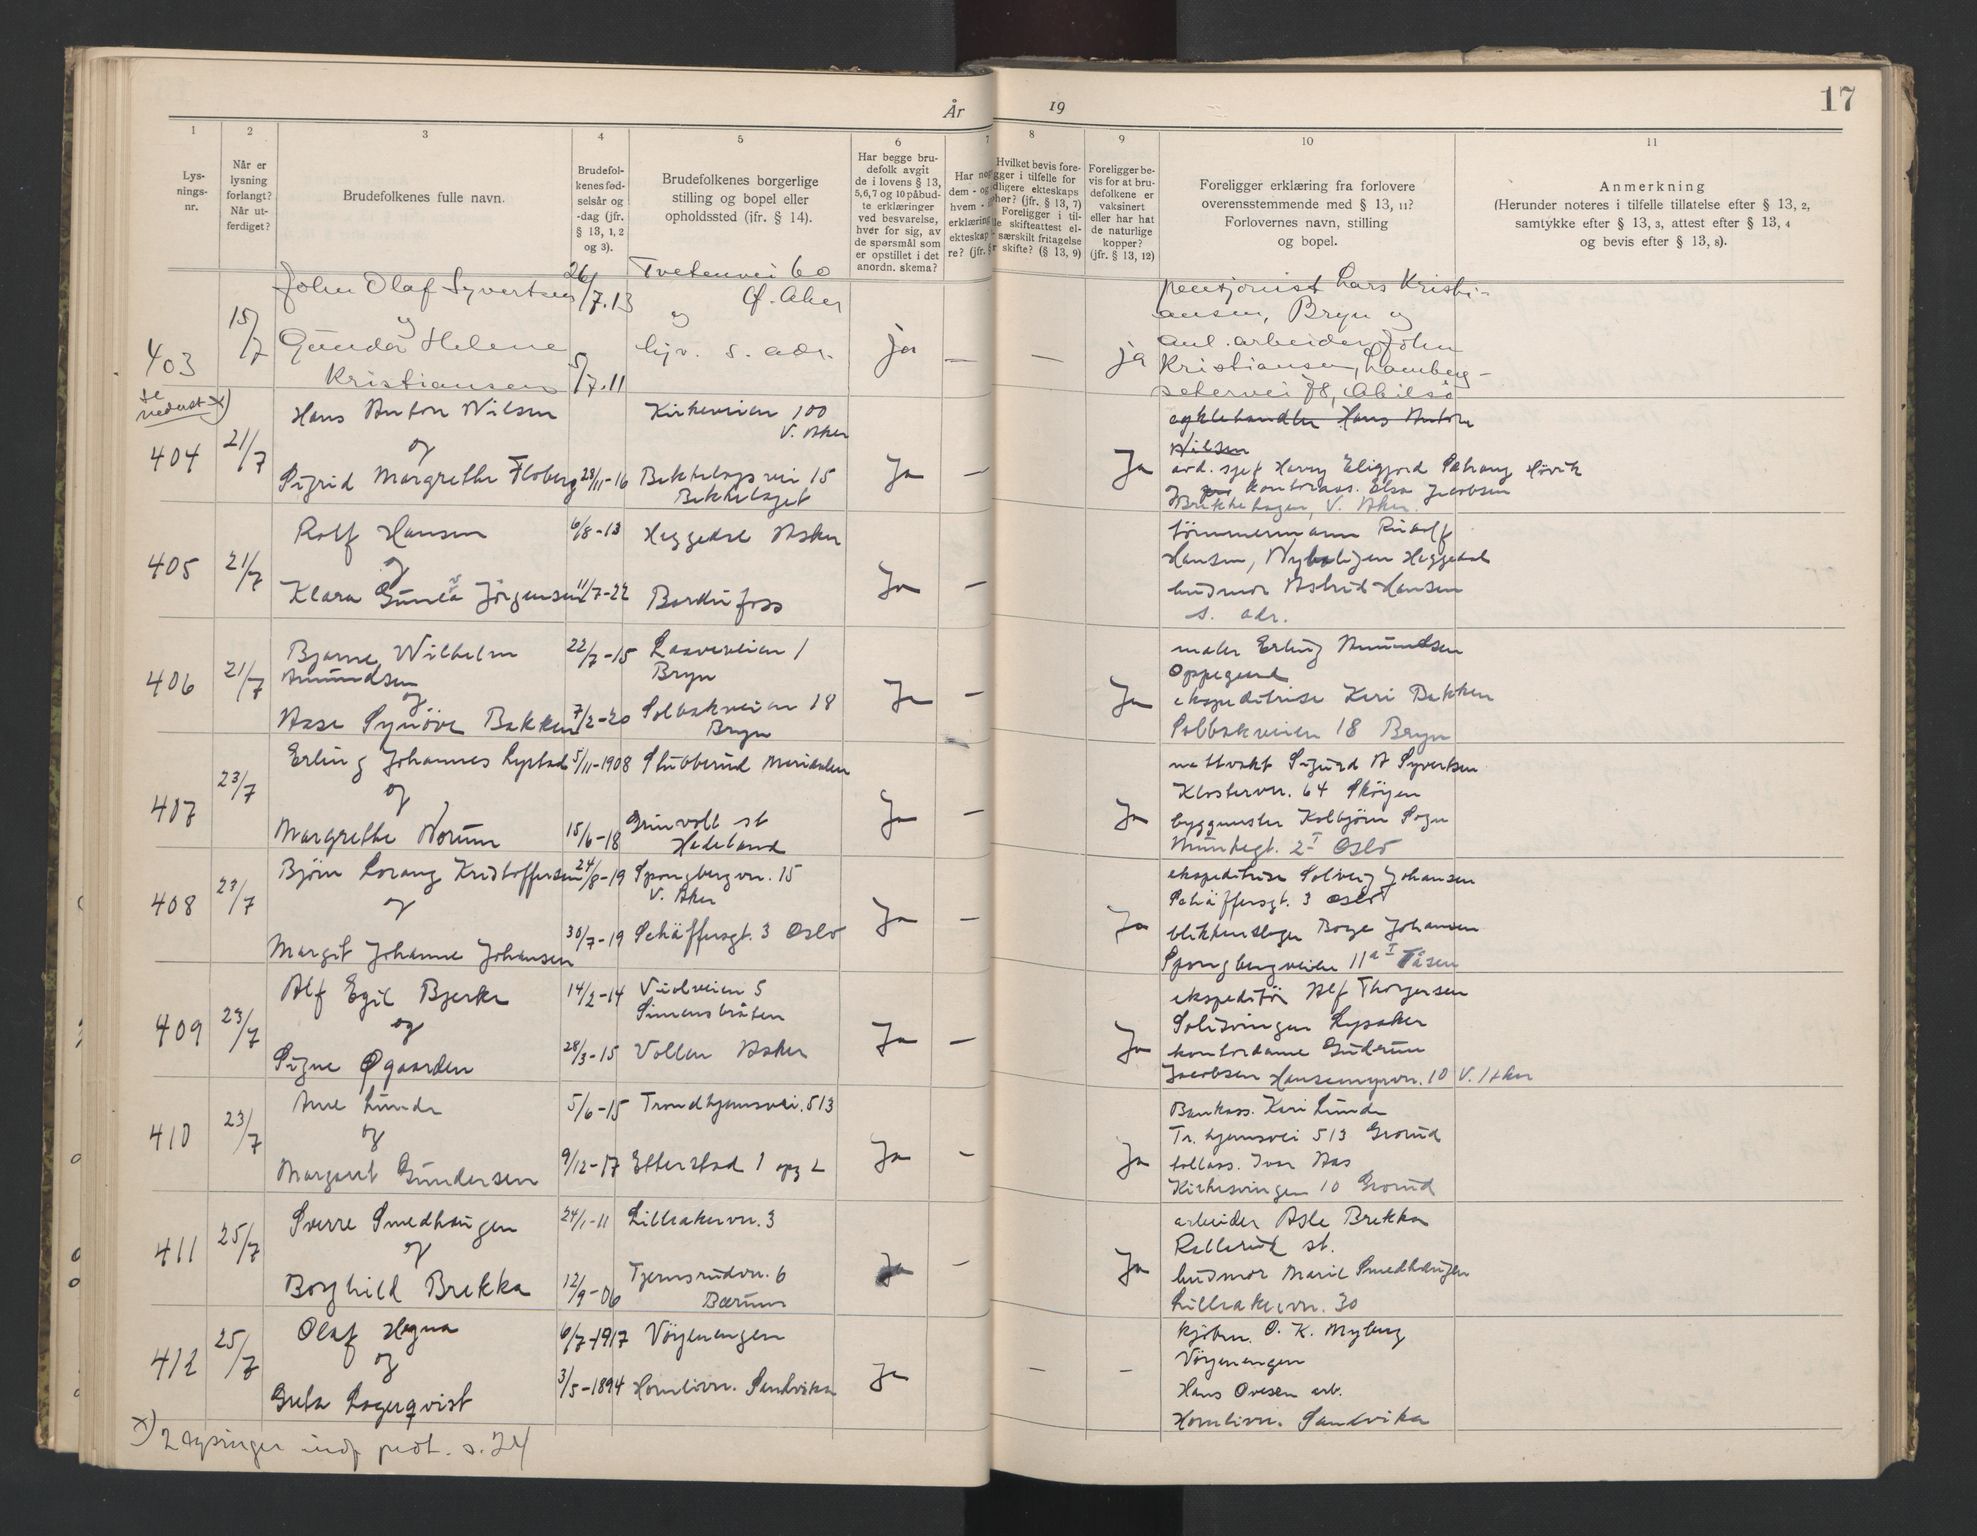 År 19
17
1 2 3 4 5 6 7 8 9 10 11
Lys-
nings-
nr.
Når er
lysning
forlangt?
Når ut-
ferdiget?
Brudefolkenes fulle navn.
Brudefol-
kenes fød-
selsår og
-dag (jfr.
§ 13, 1, 2
og 3).
Brudefolkenes borgerlige
stilling og bopel eller
opholdssted (jfr. § 14).
Har begge bru-
defolk avgit
de i lovens § 13,
5, 6, 7 og 10 påbud-
te erklæringer
ved besvarelse,
hver for sig, av
de spørsmål som
er opstillet i det
anordn. skema?
Har nog
dem - og
hvem -
erklæring
ekteskap
re? (jfr. §
Hvilket bevis fore-
gger i tilfelle for
dligere ekteskaps
phør? (jfr. § 13, 7)
Foreligger i til-
lle skifteattest el-
særskilt fritagelse
r skifte? (§ 13, 9)
Foreligger be-
vis for at bru-
defolkene er
vaksinert
eller har hat
de naturlige
kopper?
(jfr. § 13, 12)
Foreligger erklæring fra forlovere
overensstemmende med § 13, 11?
Forlovernes navn, stilling
og bopel.
Anmerkning
(Herunder noteres i tilfelle tillatelse efter § 13, 2,
samtykke efter § 13, 3, attest efter § 13, 4
og bevis efter § 13, 8).
403 15/7 John Olaf Syvertsen 26/7.13 Tvetenvei 60
Ø. Aker
og og
Gunda Helene 5/7.11 hjv. s. adr. ja — — ja
Kristiansen
pensjonist Lars Kristi-
ansen, Bryn og
anl. arbeider John
Kristiansen, Lamberg-
setervei 78, Abilsø
se
nederst x)
404 21/7 Hans Anton Nilsen Kirkeveien 100
V. Aker
og
Sigrid Margrethe Floberg 28/11-16 Bekkelagsvei 15 Ja — Ja
Bekkelaget
cyklehandler Hans Anton
Nilsen
avd. sjef Harry Høvik
og kontorass. Elsa Jacobsen
V. Aker.
405 21/7 Rolf Hansen 6/8-13 Heggedal Asker
og
Klara Gunda Jörgensen 11/7-22 Bardufoss Ja —
tömmermann Rudolf
Hansen, Heggedal
husmor Astrid Hansen
s. adr.
406 21/7 Bjarne Wilhelm 22/7-15 1
Amundsen Bryn
og
Aase Synöve Bakken 7/2-20 Solbakveien 18 Ja — Ja
Bryn
maler Erling Amundsen
Oppegaard
ekspeditrise Kari Bakken
Solbakveien 18 Bryn
407 23/7 Erling Johannes Lystad 5/11-1908 Stubberud Maridalen
og
Margrethe Norum 15/6-18 Grinvoll st Ja — Ja
Hadeland
nattvakt Sigurd A Syvertsen
Klostervn. 64 Sköyen
byggmester Kolbjörn Sogn
Munkegt. 2 I Oslo
408 23/7 Björn Lorang Kristoffersen 24/8-19 Spongbergvn. 15
V. Aker
og
Margit Johanne Johansen 30/7-19 Schäffersgt. 3 Oslo Ja — Ja
ekspeditrise Solveig Johansen
Schäffersgt. 3 Oslo
blikkenslager Borge Johansen
Spongbergveien 11a I Tåsen
409 23/7 Alf Egil Bjerke 14/2-14 Violveien 5
Simensbråten
og
Signe Øgaarden 28/3-15 Vollen Asker Ja — Ja
ekspeditör Alf Thorgersen
Solisvingen Lysaker
kontordame Gudrun
Jacobsen Hansemyrvn. 10 V. Aker
410 23/7 Arne Lunde 5/6-15 Trondhjemsvei. 513
og
Margaret Gundersen 9/12-17 Etterstad 1 opg 2 Ja — Ja
Bankass. Kari Lunde
Tr.hjemsvei 513 Grorud
tollass. Ivar Aas
Kirkesvingen 10 Grorud
411 25/7 Sverre Smedhaugen 24/1-11 Lilleakervn. 3
og
Borghild Brekka 12/9-06 Tjernsrudvn. 6 Ja — Ja
Bærum
arbeider Asle Brekka
st.
husmor Marie Smedhaugen
Lilleakervn. 30
412 25/7 Olaf Hegna 6/7-1917 Vöyenengen
og
Greta Lagerqvist 3/5-1894 Hornlivn. Sandvika Ja — —
kjöbm. O. K. Myberg
Vöyenengen
Hans Ovesen arb.
Hornlivn. Sandvika
x) 2 lysninger prot. s. 24